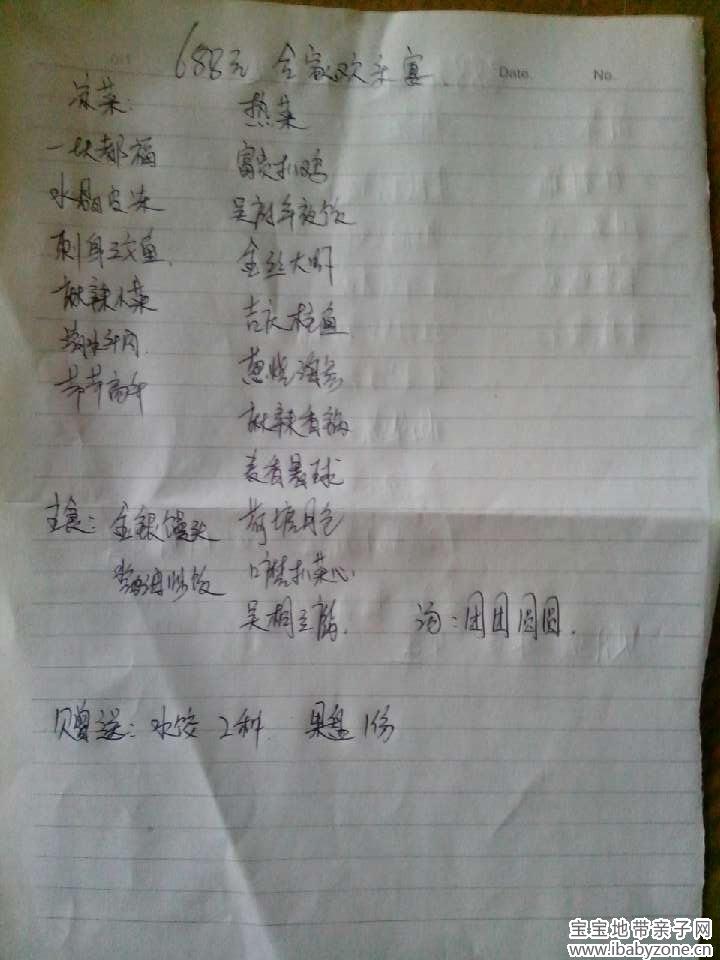 688元 合家欢乐宴
Date.
No.
凉菜:
水晶皮冻
刺身三文鱼
麻辣小菜
节节高升
热菜
富贵扒鸡
吴府年夜饭
金丝大虾
吉庆桂鱼
葱烧海参
麻辣香锅
麦香薯球
荷塘月色
口蘑扒菜心
主食: 金银馒头
汤:团团圆圆.
赠送: 水饺 2种. 果盘 1份
宝宝地带亲子网
www.ibabyzone.cn